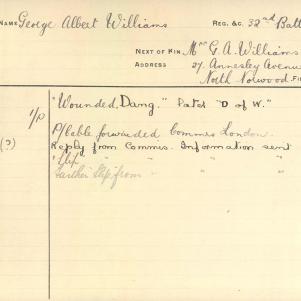 NAME George Albert Williams REG. &c. 32nd Batt
NEXT OF KIN Mrs G. A. Williams
ADDRESS 27. Annesley Avenue
North Norwood
"Wounded, Dang." Later "D of W."
P/Cable forwarded Commis London.
(?) Reply from Commis. Information sent
" Slip " " "
Further Slip from " " "